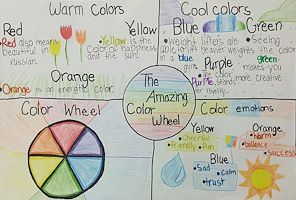 Warm Colors
Red
Red also means
beautiful in
russian.
Yellow
Yellow is the
color of happiness
and the sun!
Orange
Orange is an energetic color.
Cool colors
Blue
Weight lifters
heavier weights
in a blue
gym.
Green
Seeing
the color
green
makes you
more creative
Purple
Purple
the color
for royalty.
The
Amazing
Color
Wheel
Color Wheel
Color emotions
Yellow
Cheerful
friendly
fun
Orange
warm
ballance
success
Blue
Sad
Calm
trust